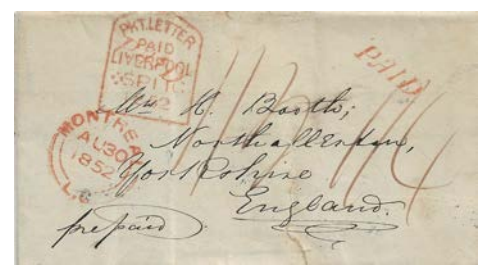 PKT. LETTER
PAID
LIVERPOOL
SP 11
PAID
MONTREAL
AU 30
1852
L.C
Wm H. Booth;
Northallerton,
Yorkshire
England.
prepaid